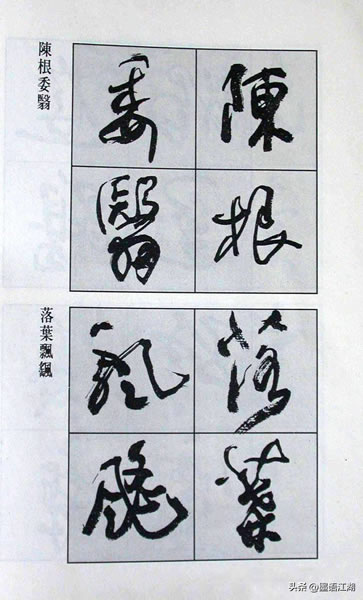 陳根
委翳
陳根委翳
落葉
飄颻
落葉飄颻
头条 @國语江湖